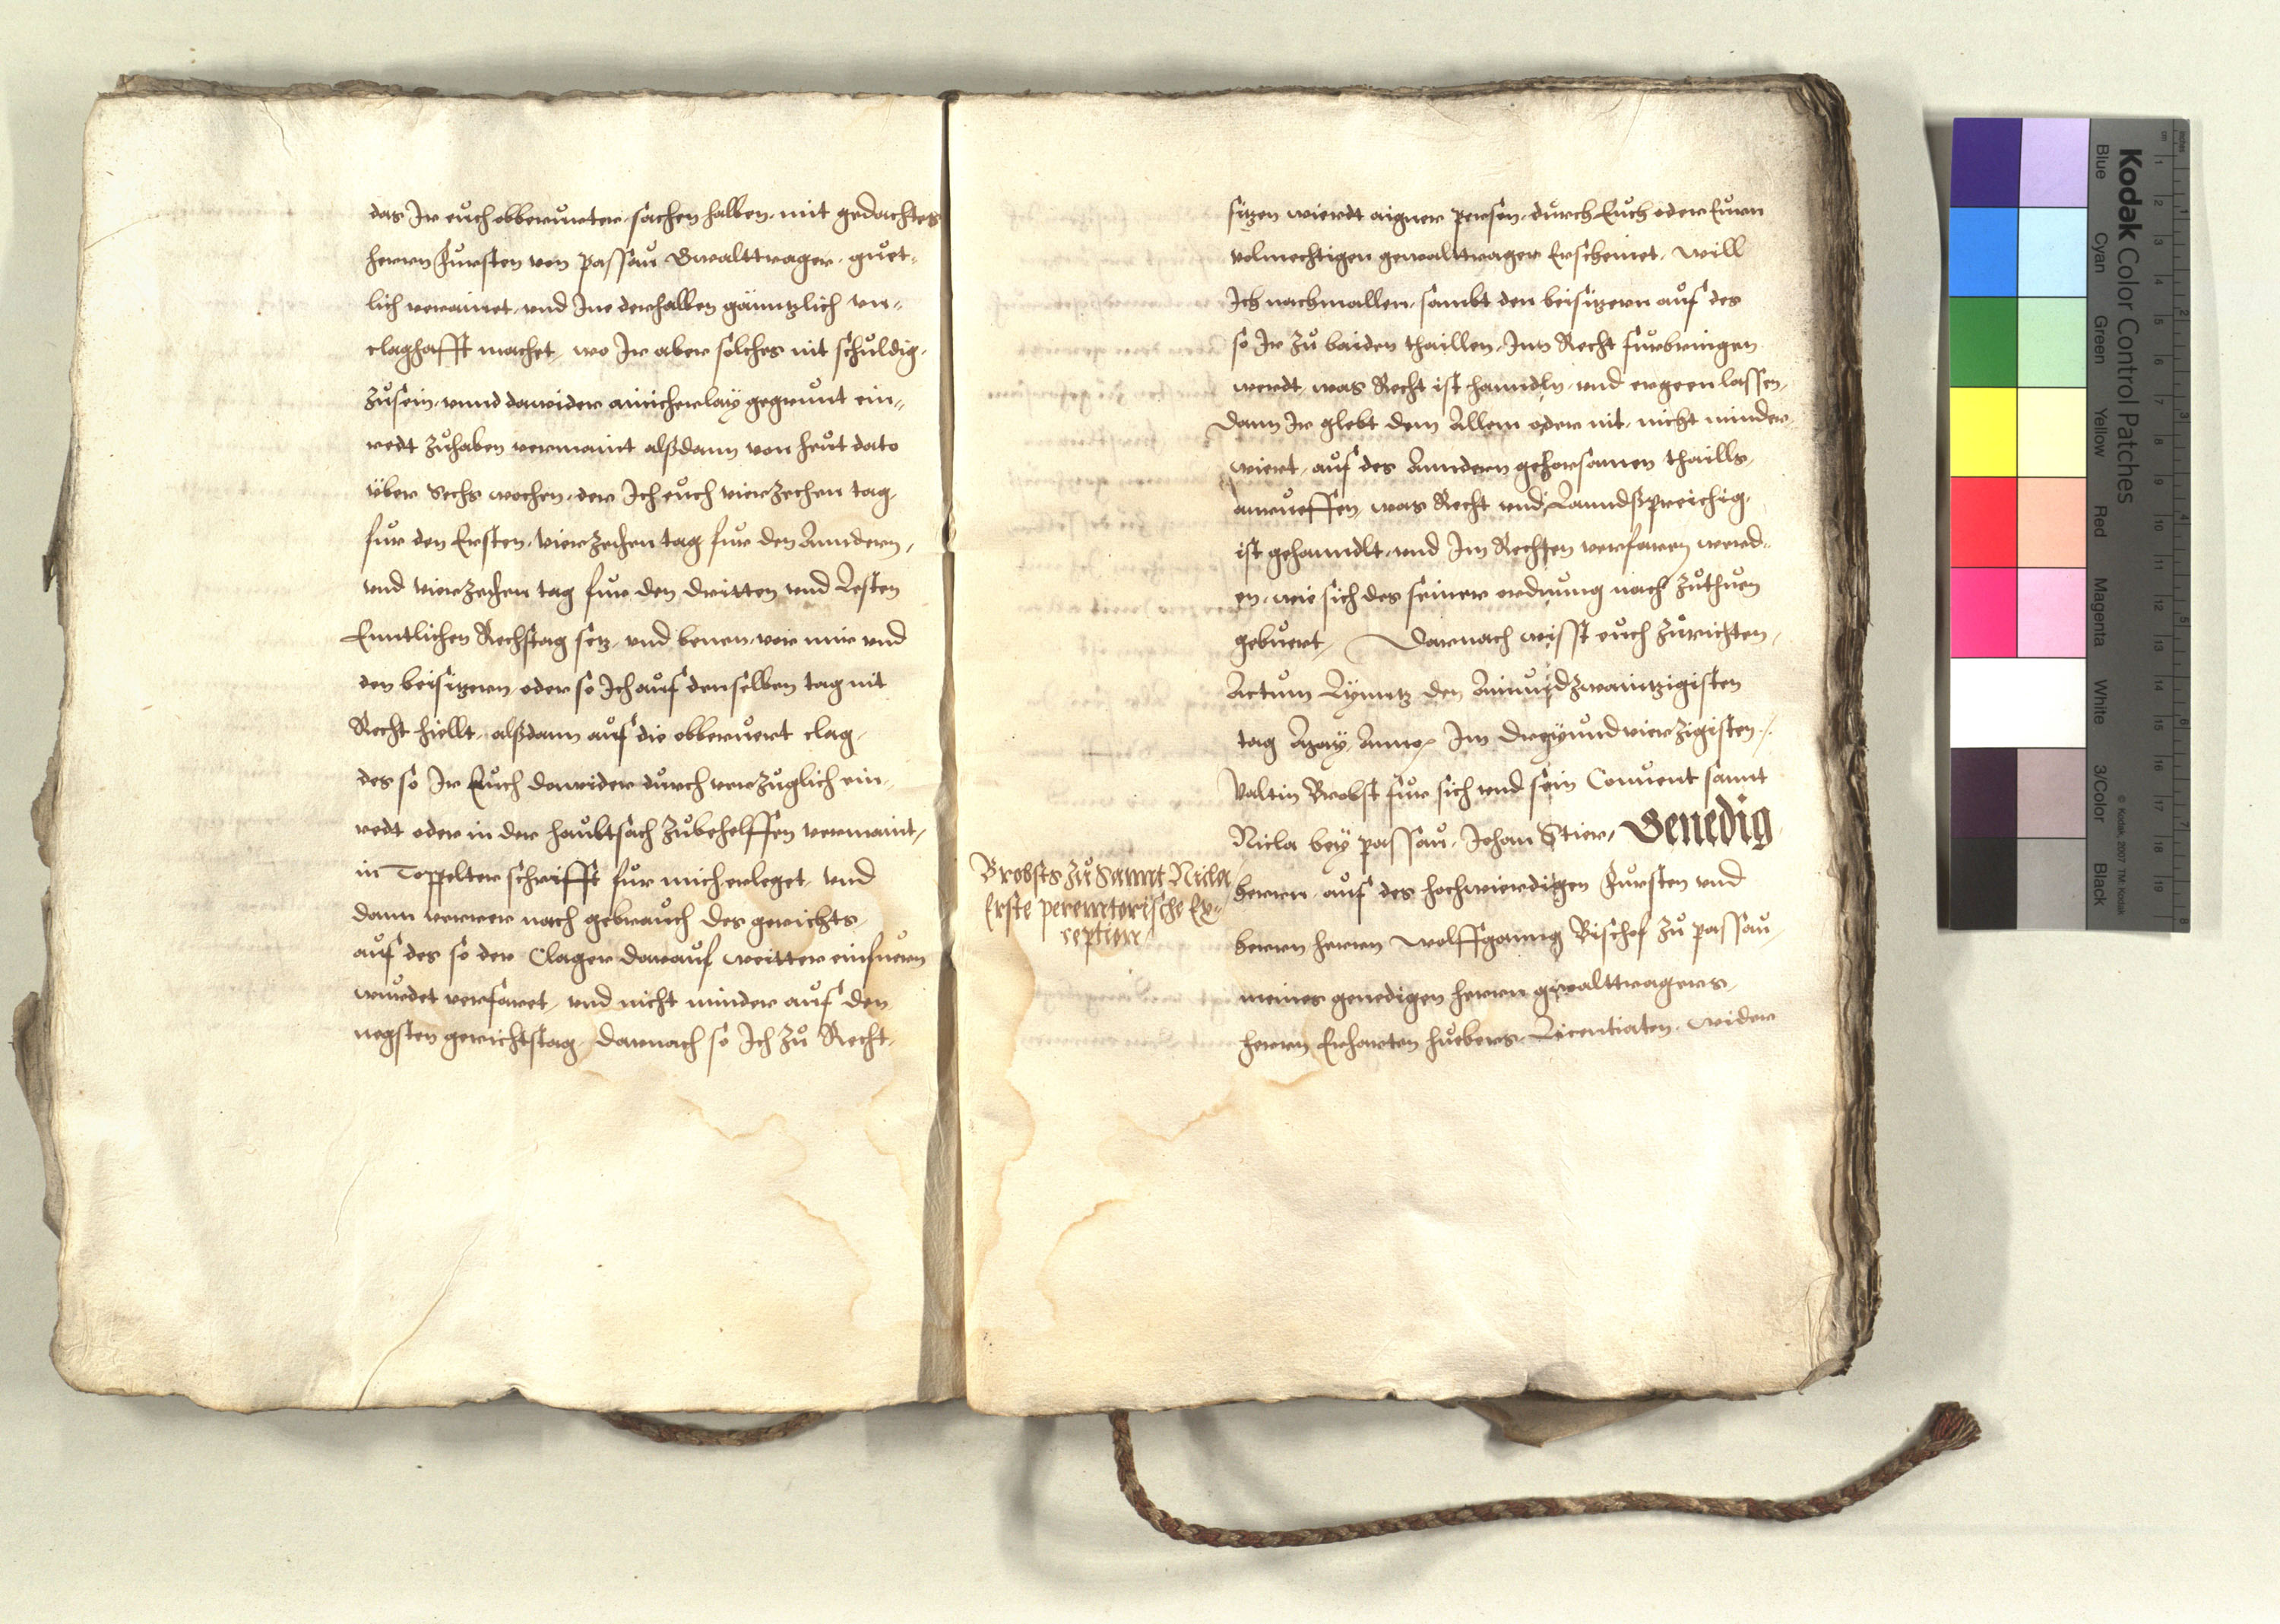 das Ir euch obberurter sachen halben mit gedachtes
herrn Fursten von passau Gwalttrager guet-
lich verainet, und Ine derhalben gänntzlich un-
claghafft machet, wo Ir aber solches nit schuldig
zusein, unnd dawider ainicherlay gegrunt ein-
redt zuhaben vermaint alßdann von heut dato
über Sechs wochen, der Ich euch vierzechen tag
fur den Ersten, vierzechen tag fur den Anndern,
und vierzechen tag fur den dritten und Lesten
Enntlichen Rechstag setz, und benen, vor mir und
den beisitzern, oder so Ich auf denselben tag nit
Recht hiellt, alßdann auf die obberuert clag,
des so Ir Euch dawider durch verzuglich ein-
redt oder in der haubtsach zubehelffen vermaint,
in Toppelter schrifft fur mich erleget, und
dann verrer nach gebrauch des gerichts,
auf des so der Clager darauf weitter einfuern
wurdet verfaret, und nicht minder auf den
negsten gerichtstag, darnach so Ich zu Recht
sitzen wierdt aigner person, durch Euch oder Eurn
volmechtigen gewalttrager Erscheinet, Will
Ich nachmallen, sambt den beisitzern auf des
so Ir zu baiden thaillen, Inn Recht furbringen
werdt, was Recht ist hanndln, und ergeen lassen,
Dann Ir glebt dem Allem oder nit, nicht minder
wiert, auf des Anndern gehorsamen thaills,
anrueffen, was Recht und Lanndßpreichig,
ist gehanndlt, und Im Rechten verfaren werd-
en, wie sich des seiner ordnung nach zuthuen
gebuert, Darnach wisst euch zurichten,
Actum Lynntz den Ainundzwaintzigisten
tag May Anno Im Dreyundvierzigisten
Valtin Brobst fur sich und sein Convent sannt
Nicla bey passau, Johan Stier, Genedig
Brobsts zu Sannt Nicla
Erste peremtorische Ex-
ception
herrn, auf des hochwierdigen Fursten und
herrn herrn Wolffganng Bischof zu passau,
meines genedigen herrn gwalttragers,
herrn Erharten huebers, Licentiaten, wider